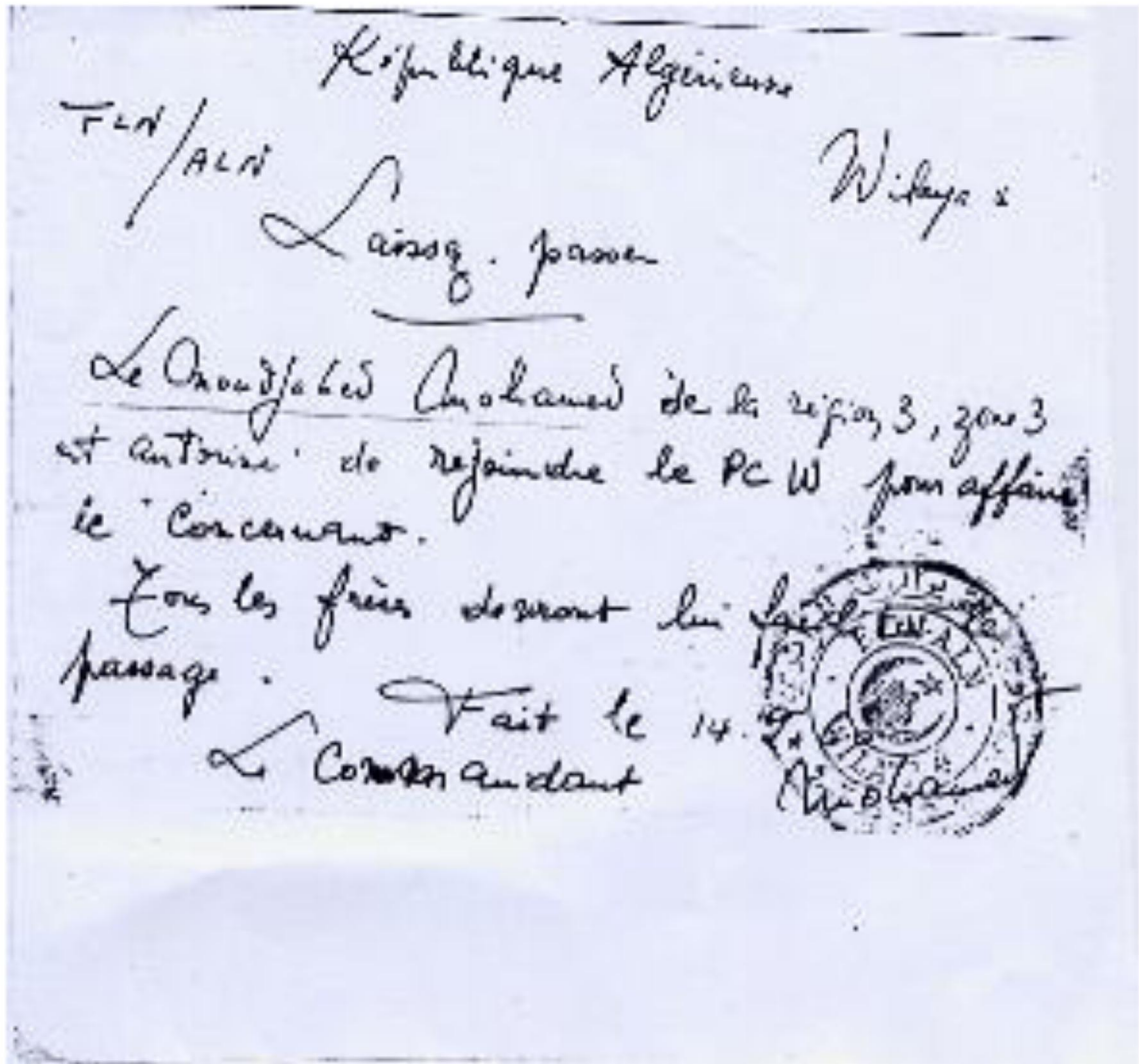 République Algérienne
FLN/ALN
Wilaya
Laissez-passer
Le Moudjahed Mohamed de la région 3, zone 3
est autorisé de rejoindre le PC W pour affaire
le concernant.
Tous les frères devront lui le
passage. Fait le 14.
Le Commandant Mohamed
FLN.ALN